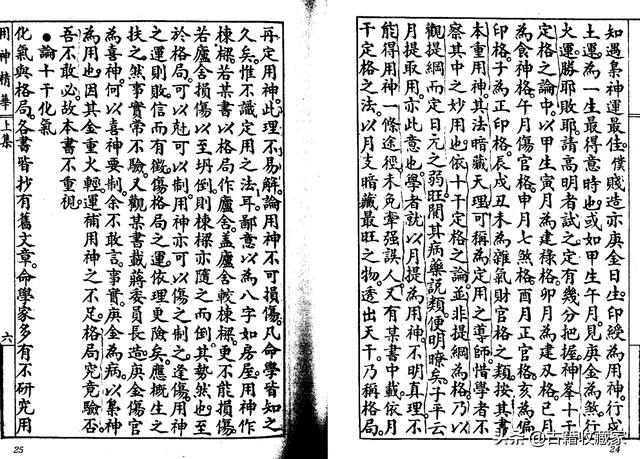 知遇梟神運最佳。僕賤造亦庚金日生。印綬為用神。行戍
土運。為一生最得意時也。或如甲生午月。見庚金為煞。行
火運。勝耶敗耶。請高明者試之。定有幾分把握。神峯十干
定格之論中。以甲生寅月為建祿格。卯月為建刃格。巳月
為食神格。午月傷官格。申月七煞格。酉月正官格。亥為偏
印格。子為正印格。辰戌丑未為雜氣財官格之類。按其書
本重用神。其法暗藏天理。可稱為定用之導師。惜學者不
察其中之妙用也。依十干定格之論。並非提綱為格。乃以
觀提綱而定日元之弱旺。閱其病藥說類。便明瞭矣。子平云
月提取用。亦此意也。學者就以月提為用神。不明真理。不
能得用神一條途徑。未免牽强誤人。又有某書中載。依月
干定格之法。以月支暗藏最旺之物。透出天干。乃稱格局。
24
再定用神。此理不易解。論用神不可損傷。凡命學皆知之
久矣。惟不識定用之法耳。鄙意以為八字如房屋。用神作
棟樑。若某書以格局作廬舍。蓋廬舍較棟樑。更不能損傷。
若廬舍損傷。以至坍倒。則棟樑亦隨之而倒。其勢然也。至
於格局可以尅。可以制。用神亦可以傷之制之。逢傷用神
之運則敗。信而有徵。傷格局之運。依理更險矣。應概生之
扶之。然事實常不驗。又觀某書載蔣委員長造。與金傷官
為喜神。何以喜神要制。余不敢言。事實庚金為病。以梟神
為用也。因其金重火輕。運補用神之不足。格局究竟驗否。
吾不敢必。故本書不重視。
●論十干化氣
化氣與格局。各書皆抄有舊文章。命學家多有不研究用
用神精華 上集 六
25
头条@古籍收藏家